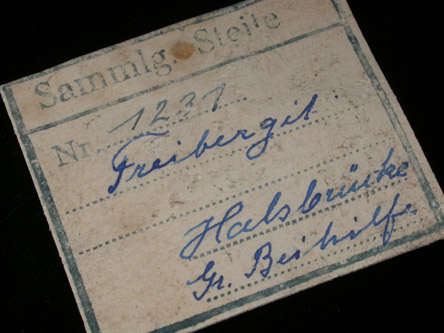 Sammlg. Steite
Nr. 1231
Freibergit.
Halsbrücke
Gr. Beihilfe